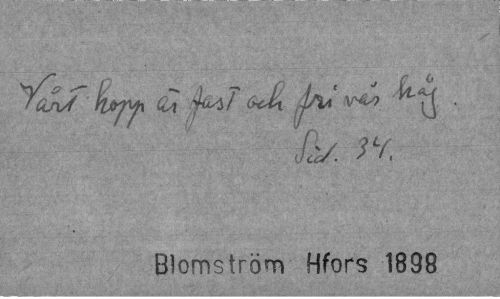 Vårt hopp är fast och fri vår håg.
Sid. 34.
Blomström Hfors 1898